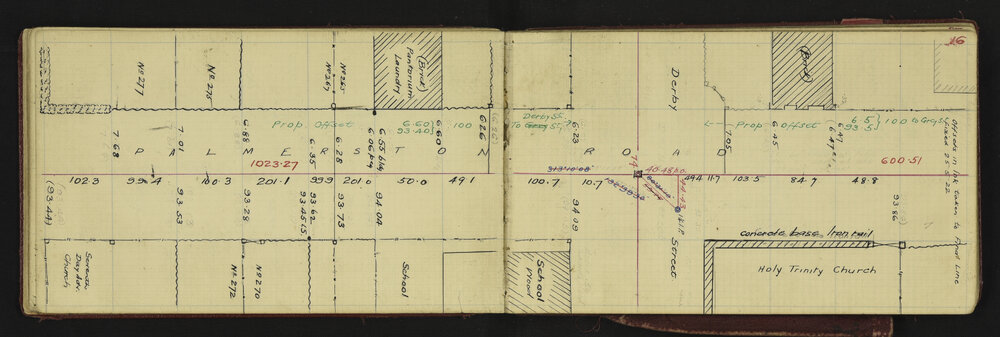 16
No 277
No 275
No 267
No 265
Pantorium
Laundry
(Brick)
Derby
(Brick)
Prop Offset
6.60
93.40
100
Derby St.
To Grey St.
Prop Offset
6.5
93.5
100 to Grey St
7.68
7.01
6.88
6.35
6.28
6.55 blg
6.06 pkg
6.60
6.26
(6.26)
6.23
7.05
6.45
6.47
PALMERSTON ROAD
1023.27
600.51
102.3
99.4
100.3
201.1
99.9
201.0
50.0
49.1
100.7
10.7
313°10'00"
40.48
49.4
11.7
103.5
84.7
48.8
(93.44)
93.53
93.28
93.62
93.45
93.73
94.04
94.09
93.86
Offsets in Ink taken to Prod Line
25.5.22
Seventh
Day Adv.
Church
No 272
No 270
School
School
Wood
Street
concrete base Iron rail
Holy Trinity Church